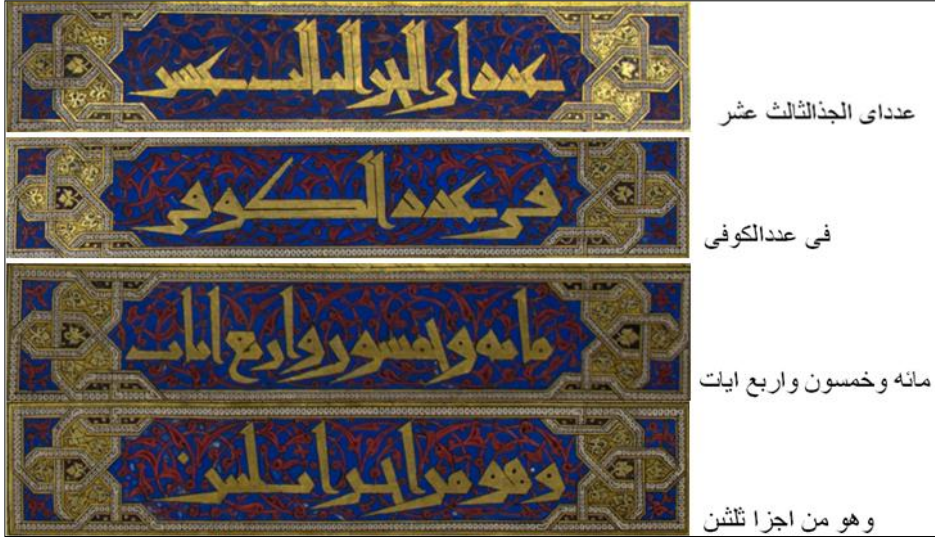 عددای الجذالثالث عشر
فی عددالکوفی
مائه وخمسون واربع ایات
وهو من اجزا ثلثن